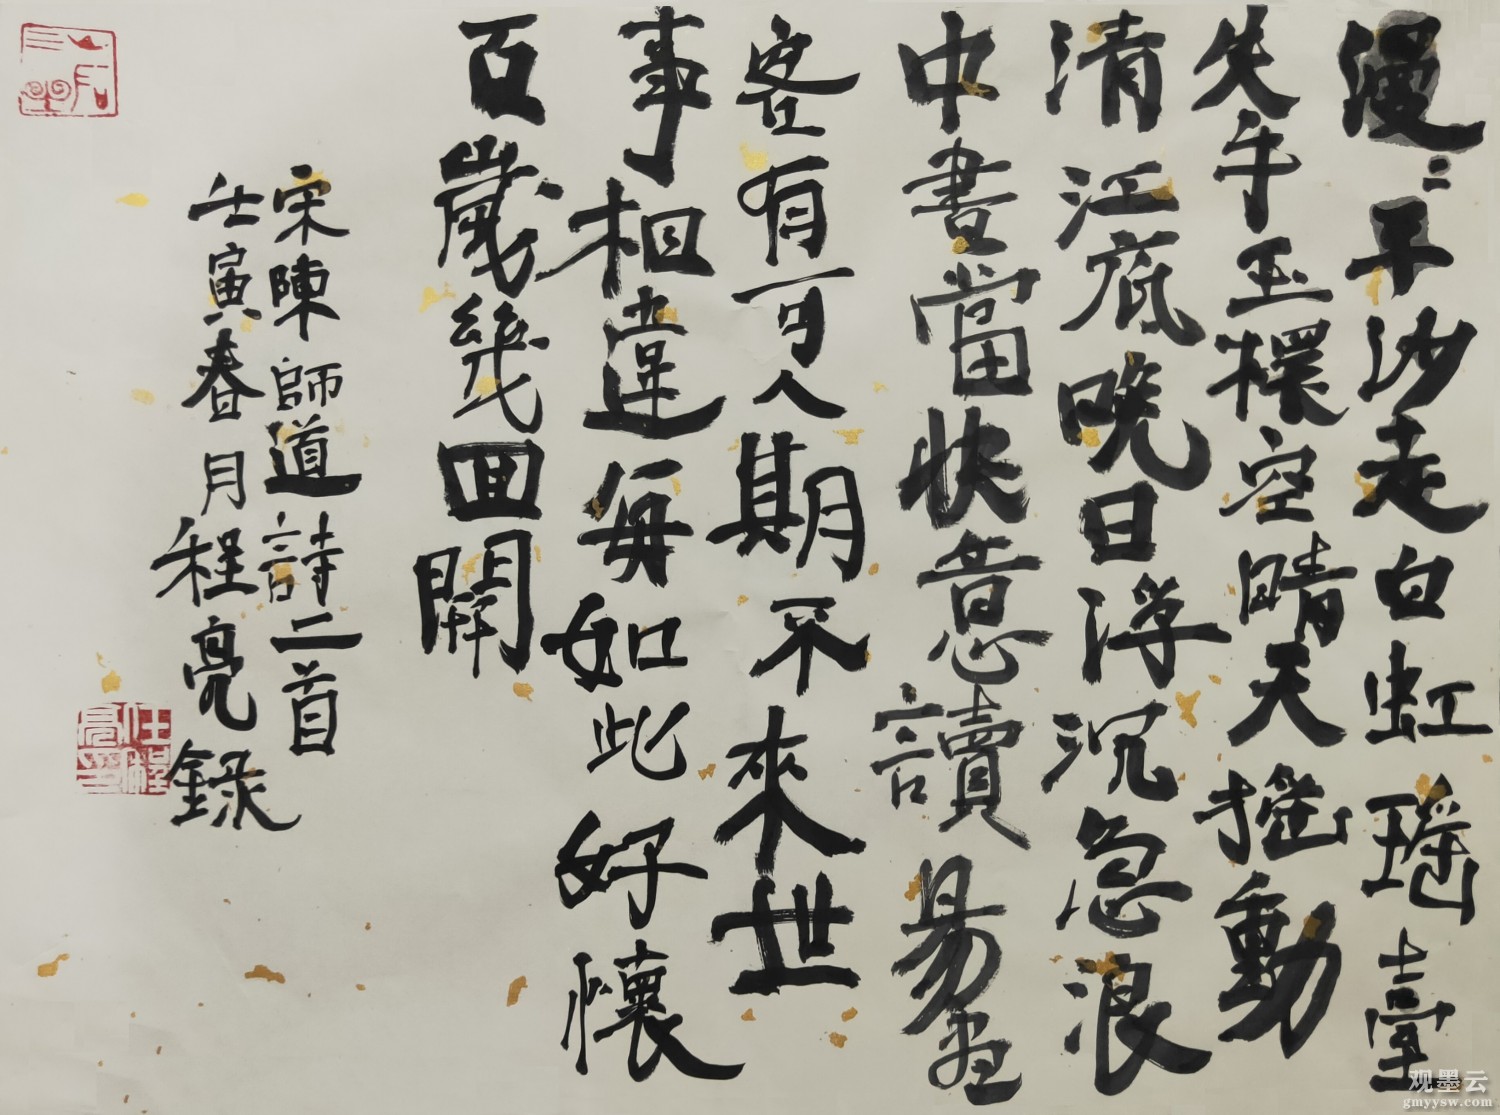 漫〻平沙走白虹瑶臺
失手玉杯空晴天摇動
清江底晚日浮沉急浪
中書當快意讀易盡
客有可人期不來世
事相違每如此好懷
百歲幾回開
宋陳師道詩二首
壬寅春月程亮録
观墨云
gmyysw.com